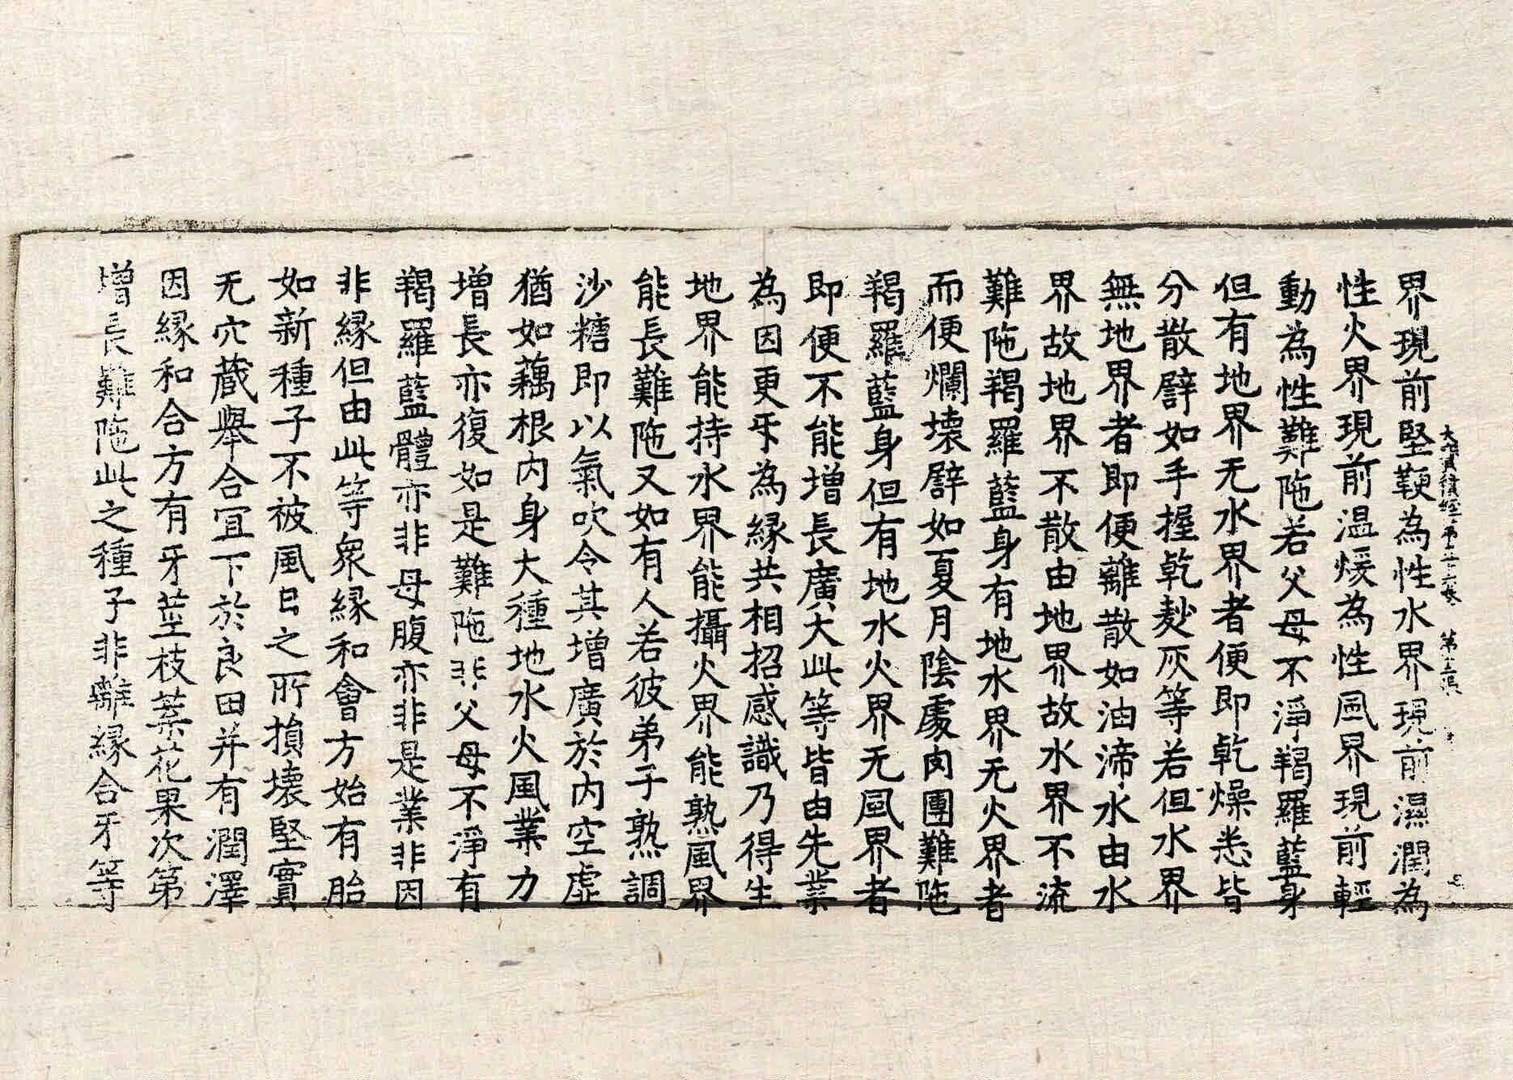 大寶積經第五十六卷 第十三張
界現前堅鞕為性水界現前濕潤為
性火界現前温煖為性風界現前輕
動為性難陁若父母不淨羯羅藍身
但有地界无水界者便即乾燥悉皆
分散譬如手握乾麨灰等若但水界
無地界者即便離散如油渧水由水
界故地界不散由地界故水界不流
難陁羯羅藍身有地水界无火界者
而便爛壞譬如夏月陰處肉團難陁
羯羅藍身但有地水火界无風界者
即便不能增長廣大此等皆由先業
為因更㸦為緣共相招感識乃得生
地界能持水界能攝火界能熟風界
能長難陁又如有人若彼弟子熟調
沙糖即以氣吹令其增廣於內空虛
猶如藕根內身大種地水火風業力
增長亦復如是難陁非父母不淨有
羯羅藍體亦非母腹亦非是業非因
非緣但由此等衆緣和會方始有胎
如新種子不被風日之所損壞堅實
无穴藏舉合宜下於良田并有潤澤
因緣和合方有牙莖枝葉花果次第
增長難陁此之種子非離緣合牙等